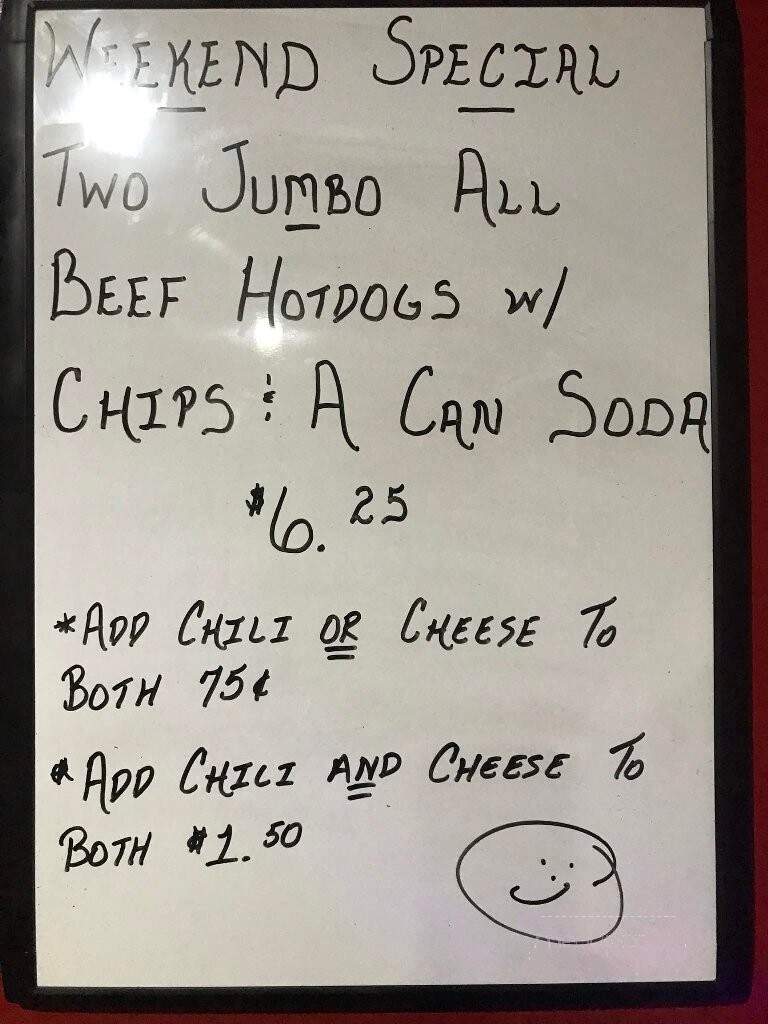 WEEKEND SPECIAL
TWO JUMBO ALL
BEEF HOTDOGS W/
CHIPS & A CAN SODA
$6.25
*ADD CHILI OR CHEESE TO
BOTH 75¢
*ADD CHILI AND CHEESE TO
BOTH $1.50